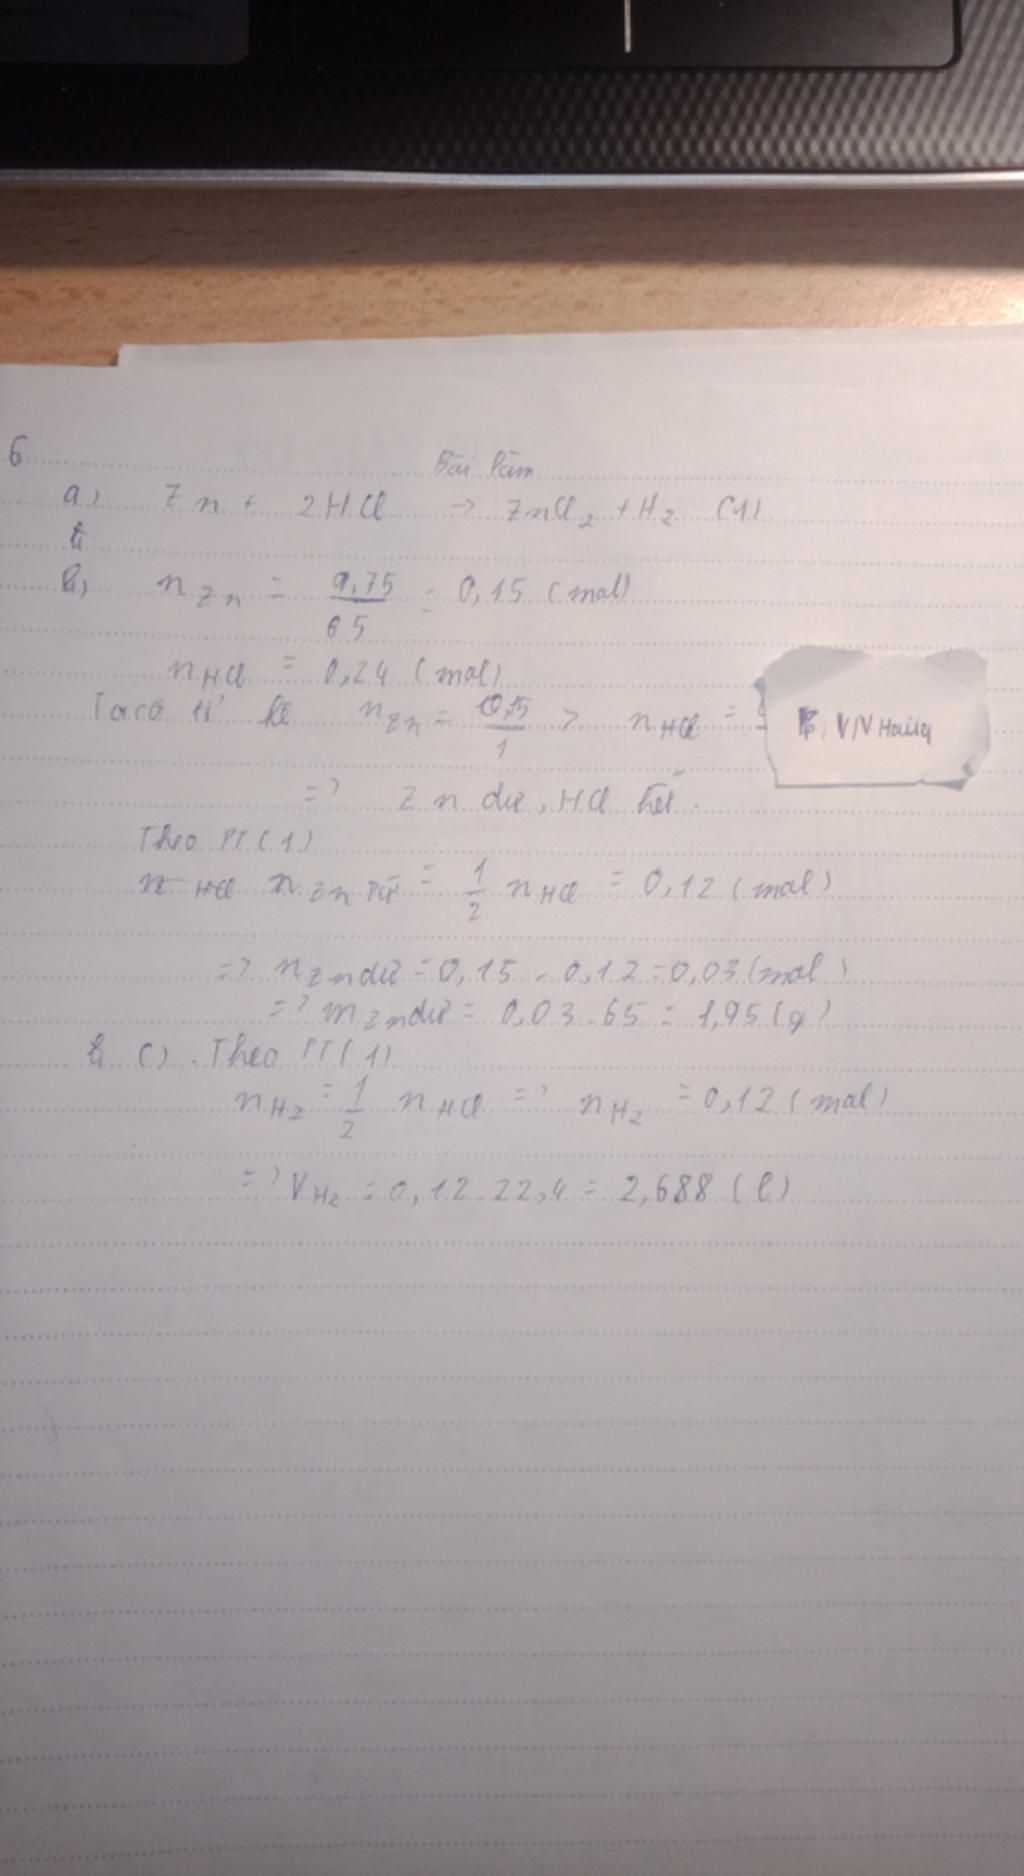 6
Bài làm
a) Zn + 2HCl -> ZnCl2 + H2 (1)
b) nZn = 9,75/65 = 0,15 (mol)
nHCl = 0,24 (mol)
Ta có tỉ lệ nZn = 0,15/1 > nHCl =
=> Zn dư, HCl hết.
Theo PT(1)
nZn PƯ = 1/2 nHCl = 0,12 (mol)
=> nZn dư = 0,15 - 0,12 = 0,03 (mol)
=> mZn dư = 0,03.65 = 1,95 (g)
c). Theo PT(1)
nH2 = 1/2 nHCl => nH2 = 0,12 (mol)
=> VH2 = 0,12.22,4 = 2,688 (l)